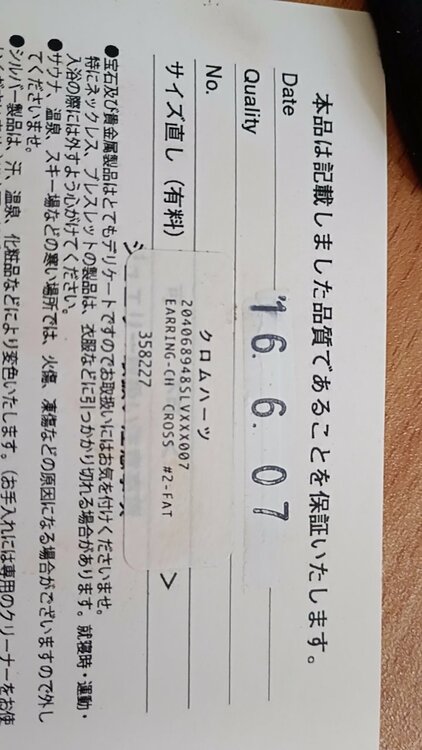 本品は記載しました品質であることを保証いたします。
Date '16. 6. 07
Quality
No.
クロムハーツ
204068948SLVXXX007
EARRING-CH CROSS #2-FAT
358227
サイズ直し(有料)
●宝石及び貴金属製品はとてもデリケートですのでお取扱いにはお気を付けくださいませ。
特にネックレス、ブレスレットの製品は、衣服などに引っかかり切れる場合があります。就寝時・運動・
入浴の際には外すよう心がけてください。
●サウナ、温泉、スキー場などの寒い場所では、火傷、凍傷などの原因になる場合がございますので外し
てくださいませ。
●シルバー製品は、汗、温泉、化粧品などにより変色いたします。(お手入れには専用のクリーナーをお使